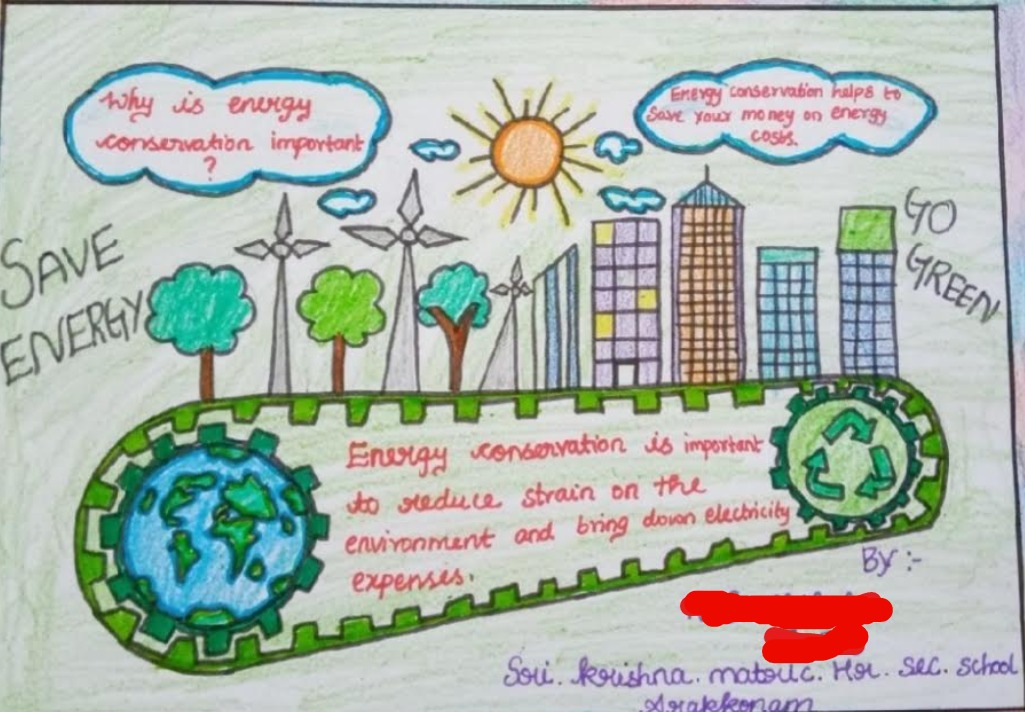 Why is energy
conservation important
?
Energy conservation helps to
Save your money on energy
costs.
SAVE
ENERGY
GO
GREEN
Energy conservation is important
to reduce strain on the
environment and bring down electricity
expenses.
By :-
Sri. krishna. matric. Hr. sec. school
Arakkonam